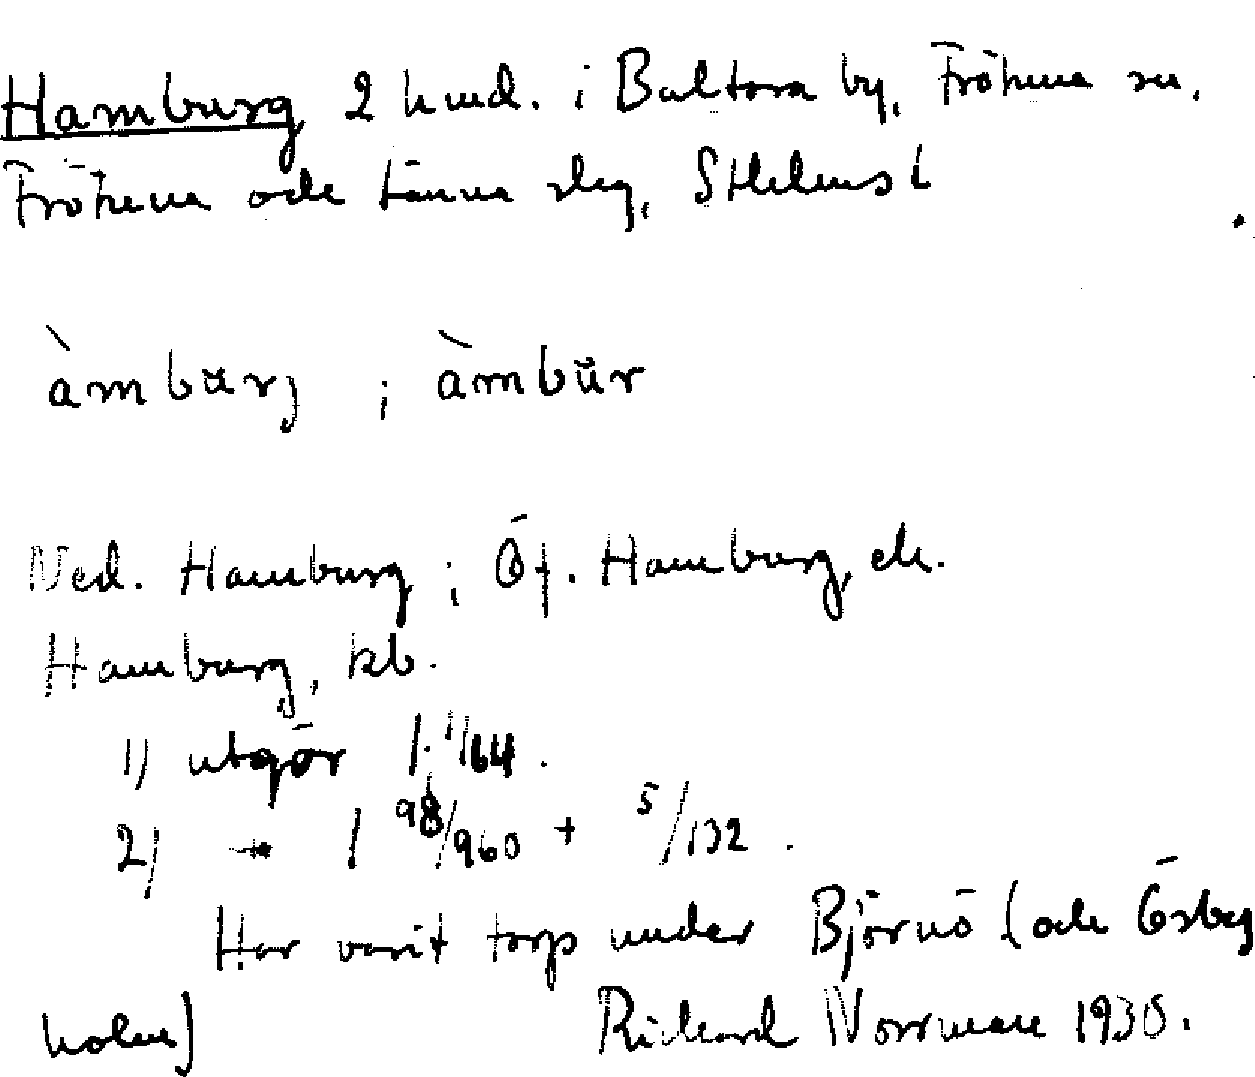 Hamburg 2 hmd. i Baltora by, Fröhma sn.
Fröhma och Länna slg, Sthlms L
àmbŭrj ; àmbŭr
Ned. Hamburg ; Öf. Hamburg, ek.
Hamburg, kb.
1) utgör 1/64.
2) 98/960 + 5/132.
Har varit torp under Björnö (och Ösby
holm) Richard Norrman 1930.